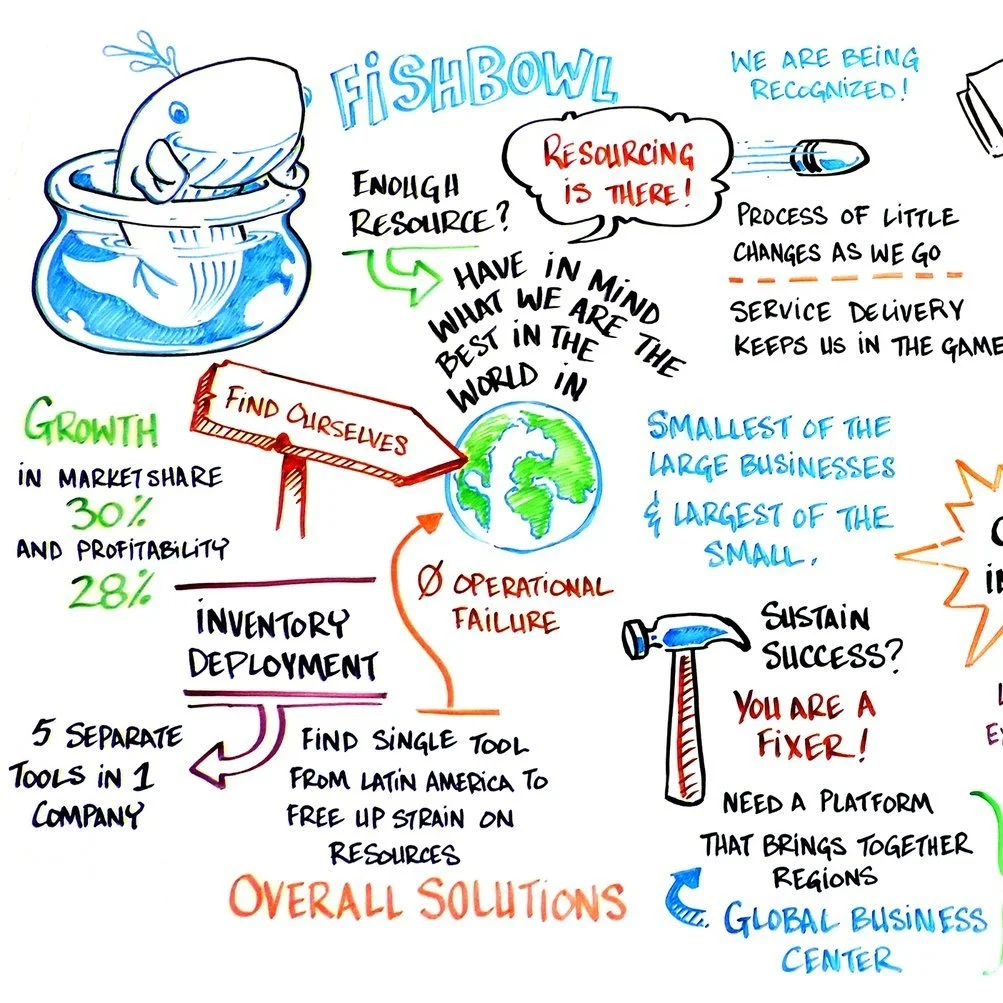 FiSHBOWL
WE ARE BEING
RECOGNIZED!
RESOURCING
iS THERE!
ENOUGH
RESOURCE?
PROCESS OF LITTLE
CHANGES AS WE GO
SERVICE DELIVERY
KEEPS US IN THE GAME
HAVE iN MIND
WHAT WE ARE THE
BEST IN THE
WORLD iN
FiND OURSELVES
GROWTH
iN MARKETSHARE
30%
AND PROFITABILITY
28%
SMALLEST OF THE
LARGE BUSINESSES
& LARGEST OF THE
SMALL.
Ø OPERATIONAL
FAILURE
iNVENTORY
DEPLOYMENT
5 SEPARATE
TOOLS iN 1
COMPANY
FIND SINGLE TOOL
FROM LATIN AMERICA TO
FREE UP STRAIN ON
RESOURCES
OVERALL SOLUTIONS
SUSTAIN
SUCCESS?
YOU ARE A
FiXER!
NEED A PLATFORM
THAT BRINGS TOGETHER
REGIONS
GLOBAL BUSINESS
CENTER